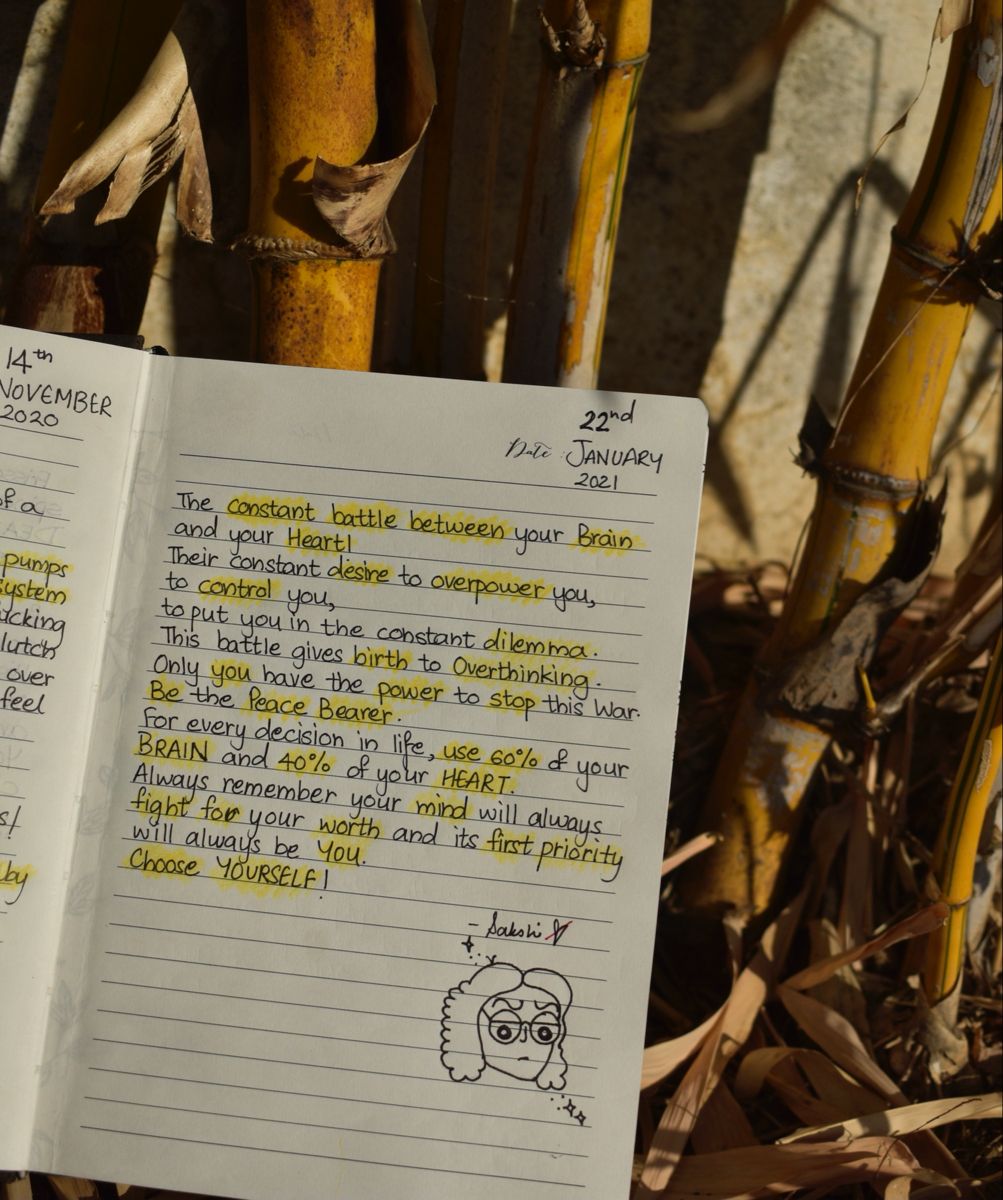 14th
NOVEMBER
2020
of a
pumps
system
lutch
over
feel
s!
by
22nd
Date : JANUARY
2021
The constant battle between your Brain
and your Heart!
Their constant desire to overpower you,
to control you,
to put you in the constant dilemma.
This battle gives birth to Overthinking.
Only you have the power to stop this War.
Be the Peace Bearer.
For every decision in life, use 60% of your
BRAIN and 40% of your HEART.
Always remember your mind will always
fight for your worth and its first priority
will always be YOU.
Choose YOURSELF!
- Sakshi